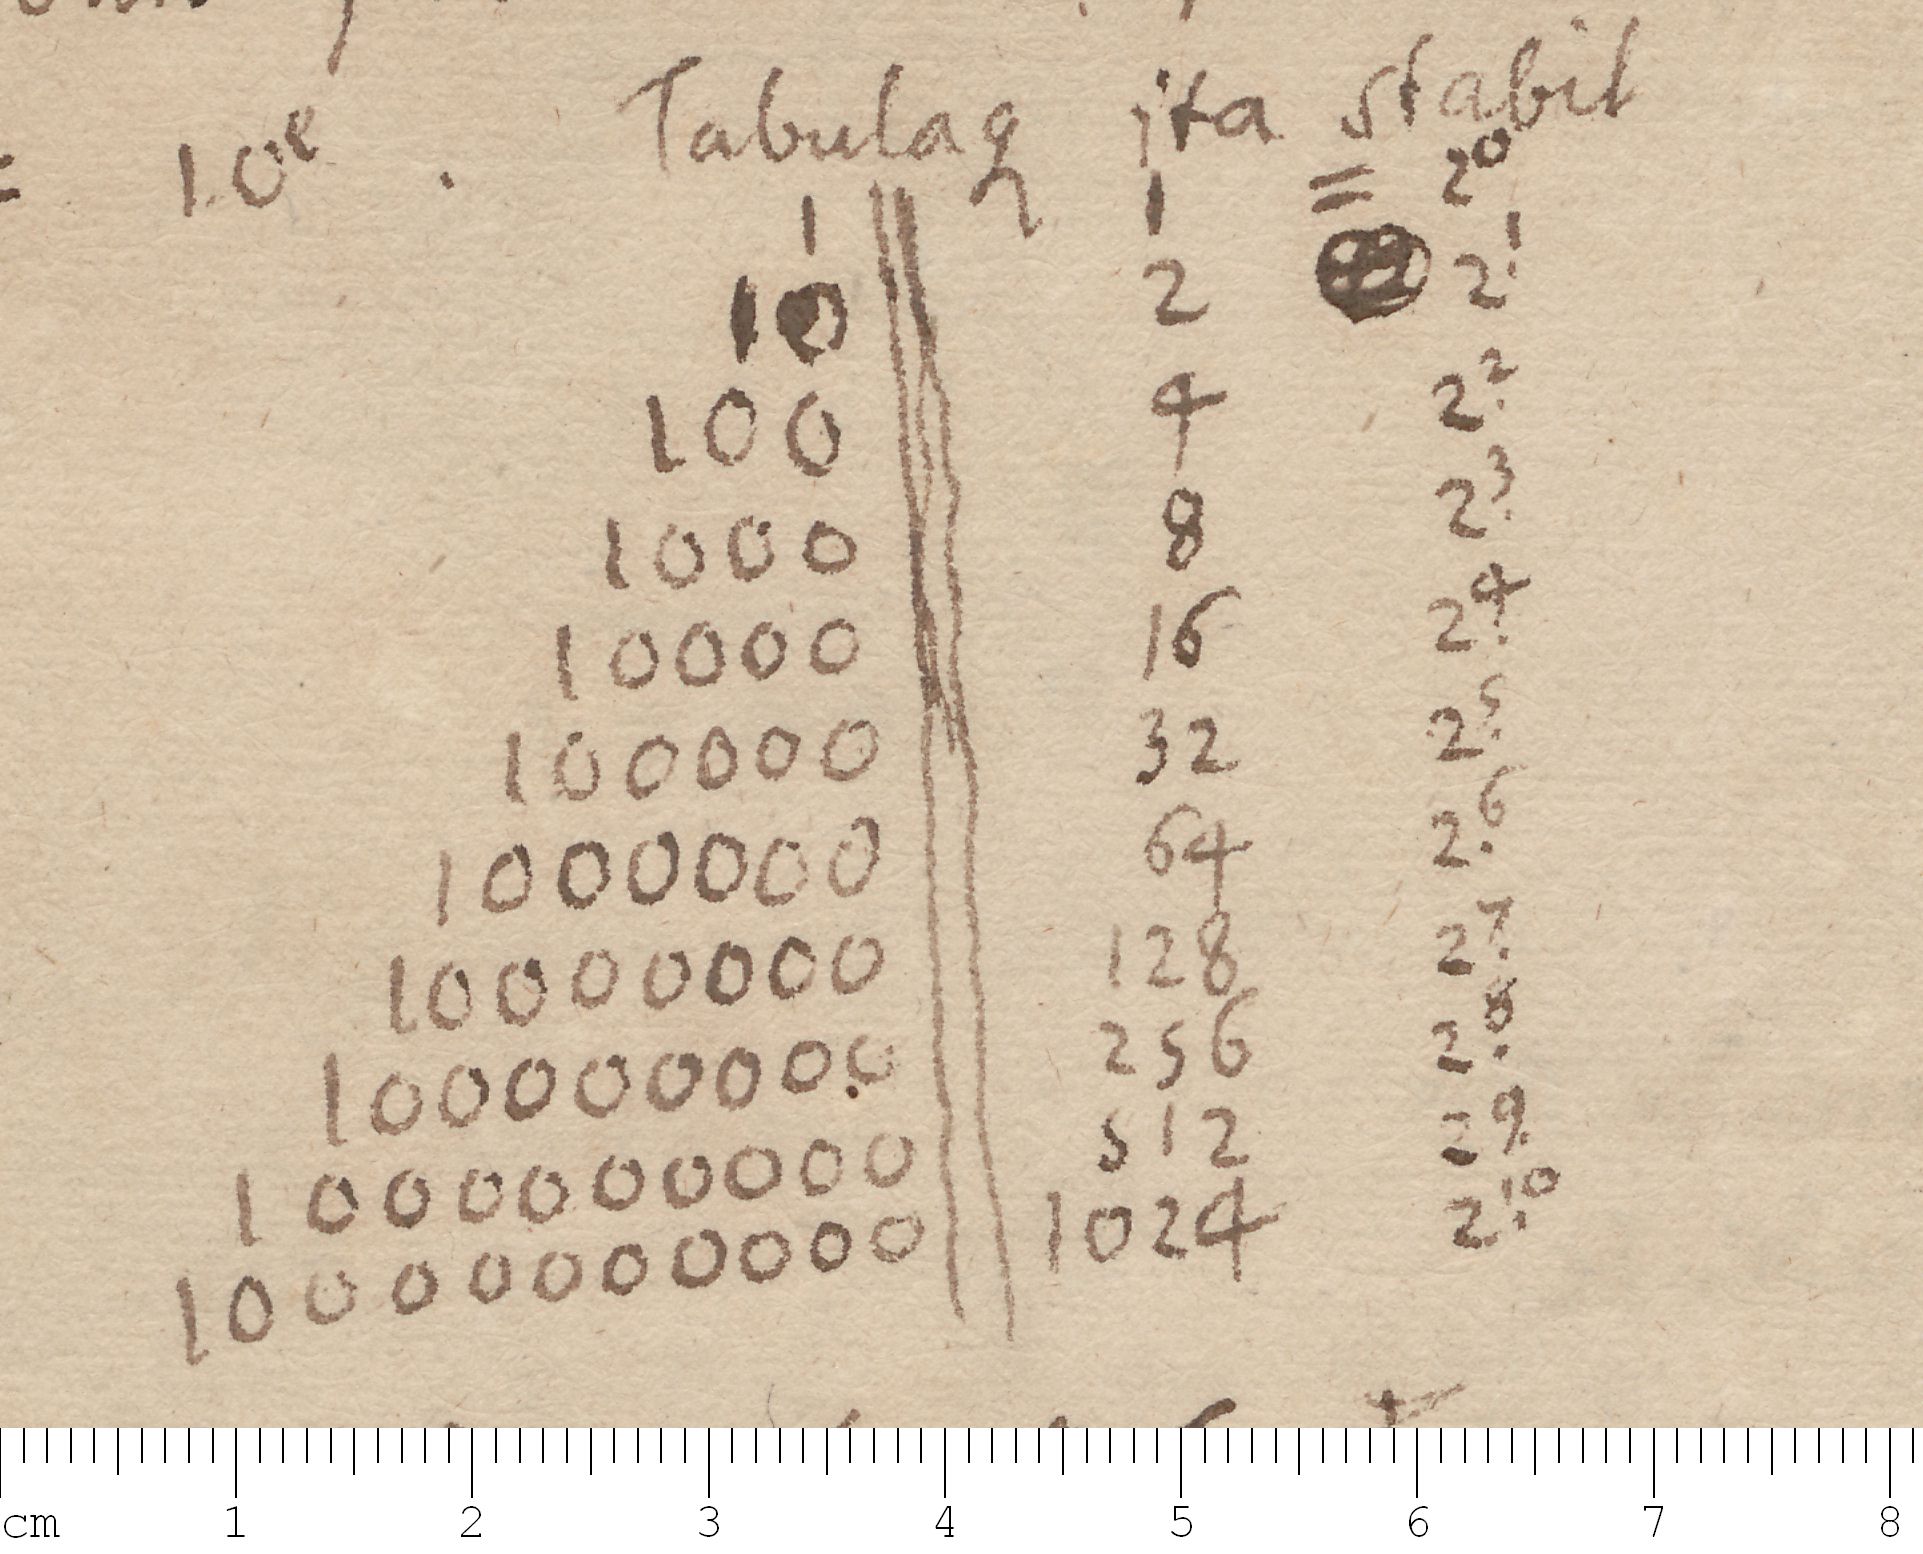 = 10ᵉ . Tabulaq ita stabit
1 1 = 2⁰
10 2 2¹.
100 4 2².
1000 8 2³.
10000 16 2⁴.
100000 32 2⁵.
1000000 64 2⁶.
10000000 128 2⁷.
100000000 256 2⁸.
1000000000 512 2⁹.
10000000000 1024 2¹⁰.
cm 1 2 3 4 5 6 7 8